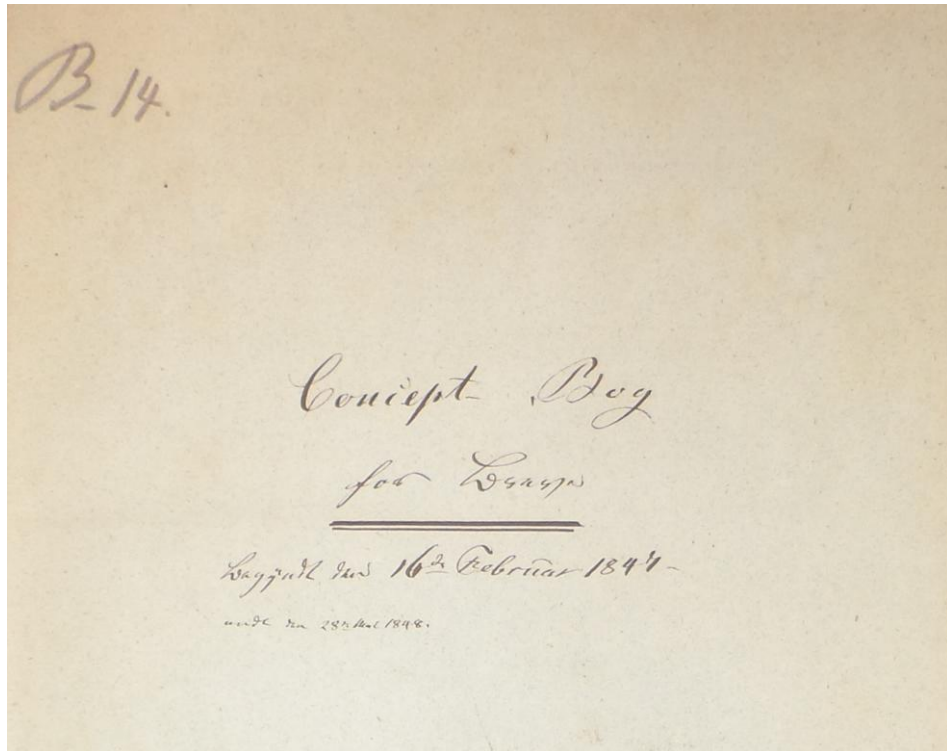 B-14.
Concept- Bog
for Breve
Begyndt den 16de Februar 1844-
endt den 28de Mai 1848.